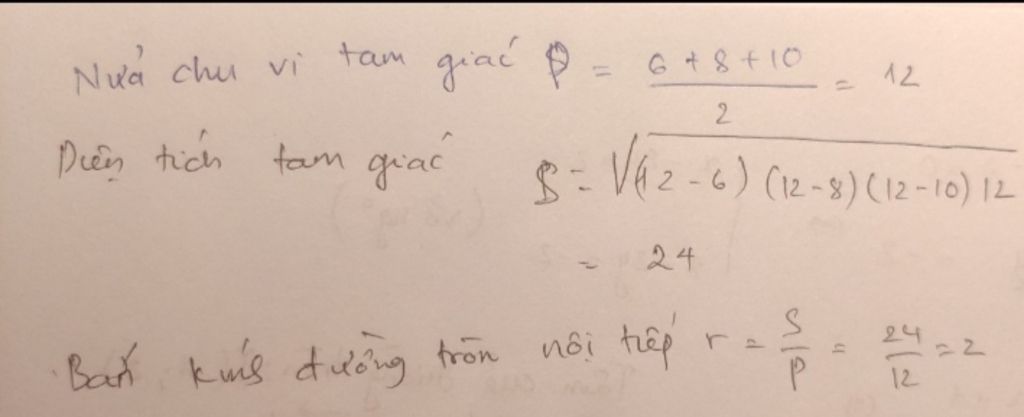 Nửa chu vi tam giác P = (6 + 8 + 10)/2 = 12
Diện tích tam giác S = √((12 - 6) (12 - 8) (12 - 10) 12)
= 24
Bán kính đường tròn nội tiếp r = S/P = 24/12 = 2